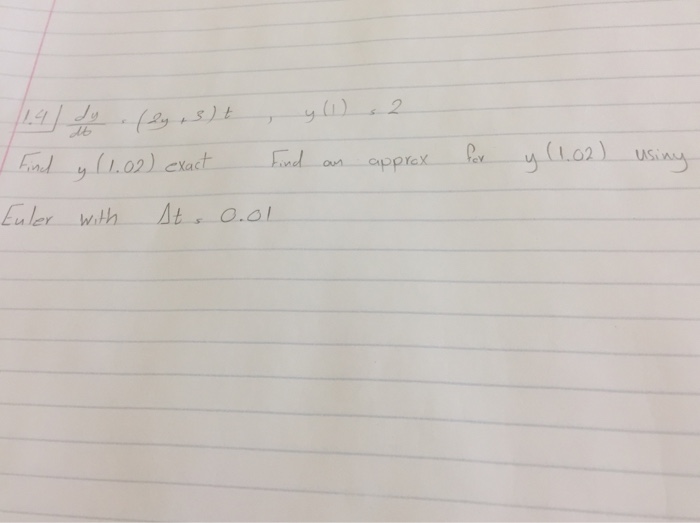 1.4) dy/dt = (2y + 3) t , y(1) = 2
Find y(1.02) exact Find an approx for y(1.02) using
Euler with Δt = 0.01